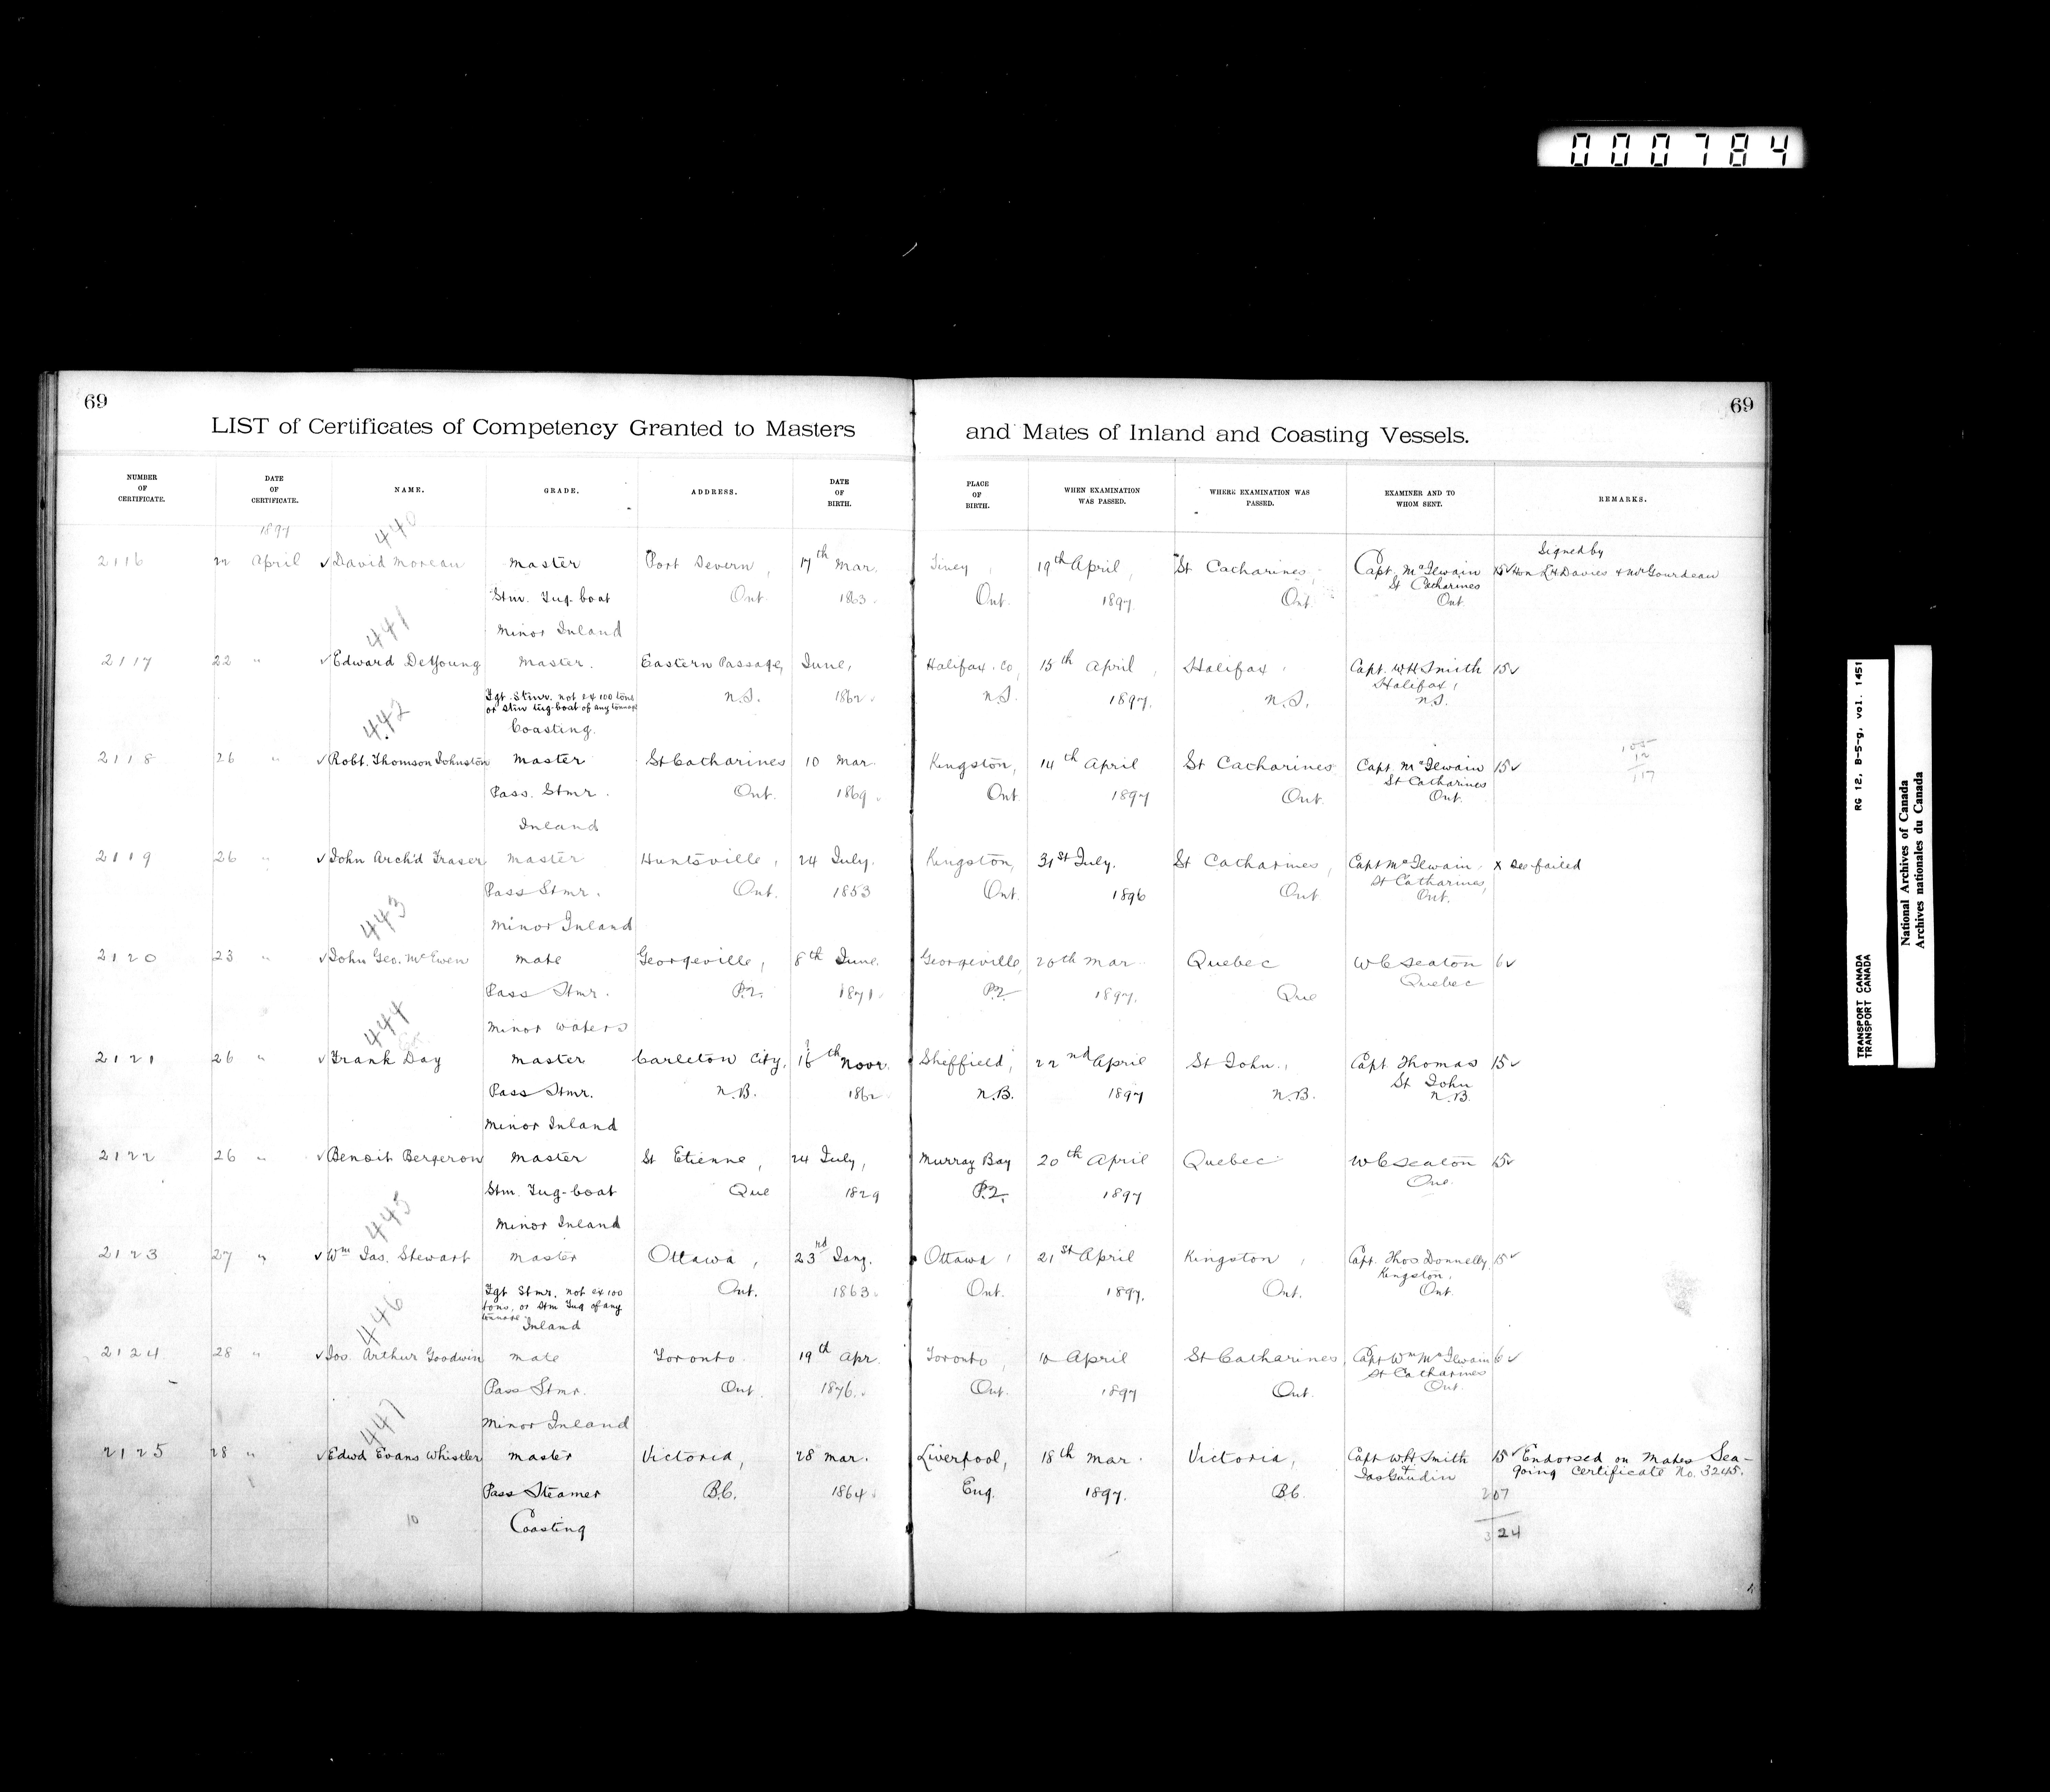 000784
69
69
LIST of Certificates of Competency Granted to Masters and Mates of Inland and Coasting Vessels.
NUMBER OF CERTIFICATE. DATE OF CERTIFICATE. NAME. GRADE. ADDRESS. DATE OF BIRTH. PLACE OF BIRTH. WHEN EXAMINATION WAS PASSED. WHERE EXAMINATION WAS PASSED. EXAMINER AND TO WHOM SENT. REMARKS.
1897 440
Signed by
2116 22 April ✓ David Moreau Master Port Severn, 17th Mar. Tiney, 19th April, St Catharines, Capt. McIlwain 15✓ Hon L H Davies + Mr Gourdeau
St Catharines
Stm. Tug-boat Ont. 1863 Ont. 1897 Ont. Ont.
Minor Inland
441
2117 22 " ✓ Edward DeYoung Master. Eastern Passage, June, Halifax Co 15th April, Halifax, Capt. W H Smith 15✓
Halifax,
Fgt. Stmr. not ex 100 tons N.S. 1862 N.S. 1897. N.S. N.S.
or Stm tug-boat of any tonnage
Coasting.
442
2118 26 " ✓ Robt. Thomson Johnston Master St Catharines 10 Mar. Kingston, 14th April St Catharines Capt. McIlwain 15✓
St Catharines
Pass. Stmr. Ont. 1869 Ont. 1897 Ont. Ont.
Inland
105
12
117
2119 26 " ✓ John Arch'd Fraser Master Huntsville, 24 July. Kingston, 31st July. St Catharines, Capt McIlwain x see failed
St Catharines,
Pass Stmr. Ont. 1853 Ont. 1896 Ont Ont.
Minor Inland
443
2120 23 " ✓ John Geo. McEwen Mate Georgeville, 8th June. Georgeville, 20th Mar Quebec W C Seaton 6✓
Quebec
Pass Stmr. P.Q. 1871 P.Q. 1897. Que
Minor waters
444
2121 26 " ✓ Frank Day Master Carleton City, 16th Novr. Sheffield, 22nd April St John, Capt Thomas 15✓
St John
Pass Stmr. N.B. 1862 N.B. 1897 N.B. N.B.
Minor Inland
2122 26 " ✓ Benoit Bergeron Master St Etienne, 24 July, Murray Bay 20th April Quebec W C Seaton 15✓
Que
Stm. Tug-boat Que 1829 P.Q. 1897
Minor Inland
445
2123 27 " ✓ Wm Jas. Stewart Master Ottawa, 23rd Jany. Ottawa, 21st April Kingston, Capt. Thos Donnelly 15✓
Kingston,
Fgt Stmr. not ex 100 Ont. 1863 Ont. 1897. Ont. Ont.
tons, or Stm Tug of any
tonnage Inland
446
2124 28 " ✓ Jos. Arthur Goodwin Mate Toronto 19th Apr. Toronto, 10 April St Catharines, Capt Wm McIlwain 6✓
St Catharines
Pass Stmr. Ont. 1876. Ont. 1897 Ont. Ont.
Minor Inland
447
2125 28 " ✓ Edwd Evans Whistler Master Victoria, 28 Mar. Liverpool, 18th Mar. Victoria, Capt W H Smith 15✓ Endorsed on Mates Sea-
+ Jas Gaudin going certificate No. 3245.
Pass Steamer B.C. 1864 Eng. 1897. B.C. 207
10 Coasting 324
TRANSPORT CANADA RG 12, B-5-g, vol. 1451
TRANSPORT CANADA
National Archives of Canada
Archives nationales du Canada